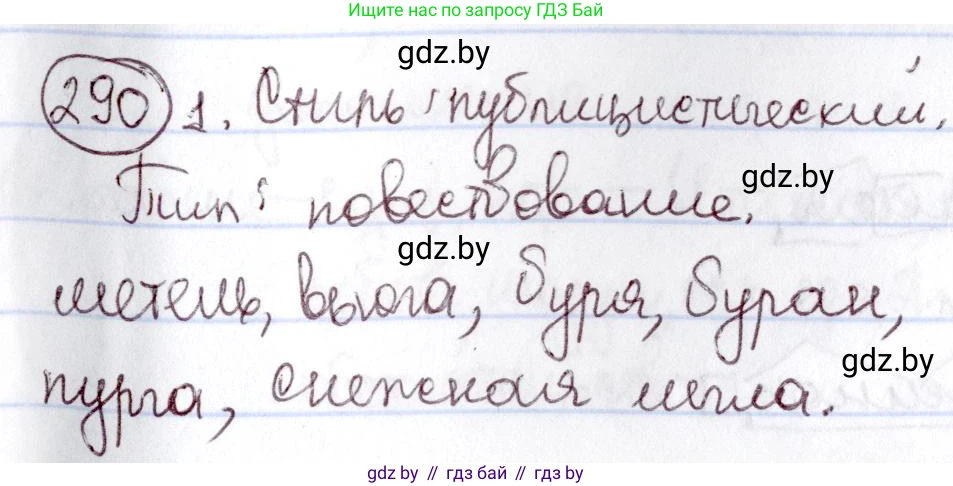 Ищите нас по запросу ГДЗ Бай
gdz.by
290 1. Стиль: публицистический.
gdz.by
Тип: повествование.
gdz.by
метель, вьюга, буря, буран,
gdz.by
пурга, снежная мгла.
gdz.by // гдз бай // gdz.by